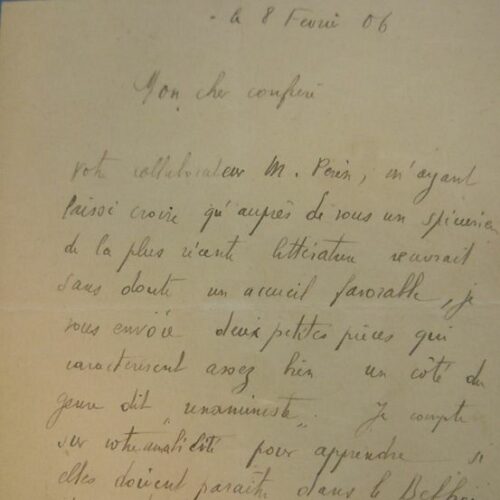 le 8 Fevrier 06
Mon cher confrère
votre collaborateur M. Perin, m'ayant
laissé croire qu'auprès de vous un
de la plus récente littérature recevrait
sans doute un accueil favorable, je
vous envoie deux petites pièces qui
caractérisent assez bien un côté du
genre dit "unanimiste". Je compte
sur votre amabilité pour apprendre si
elles doivent paraître dans le